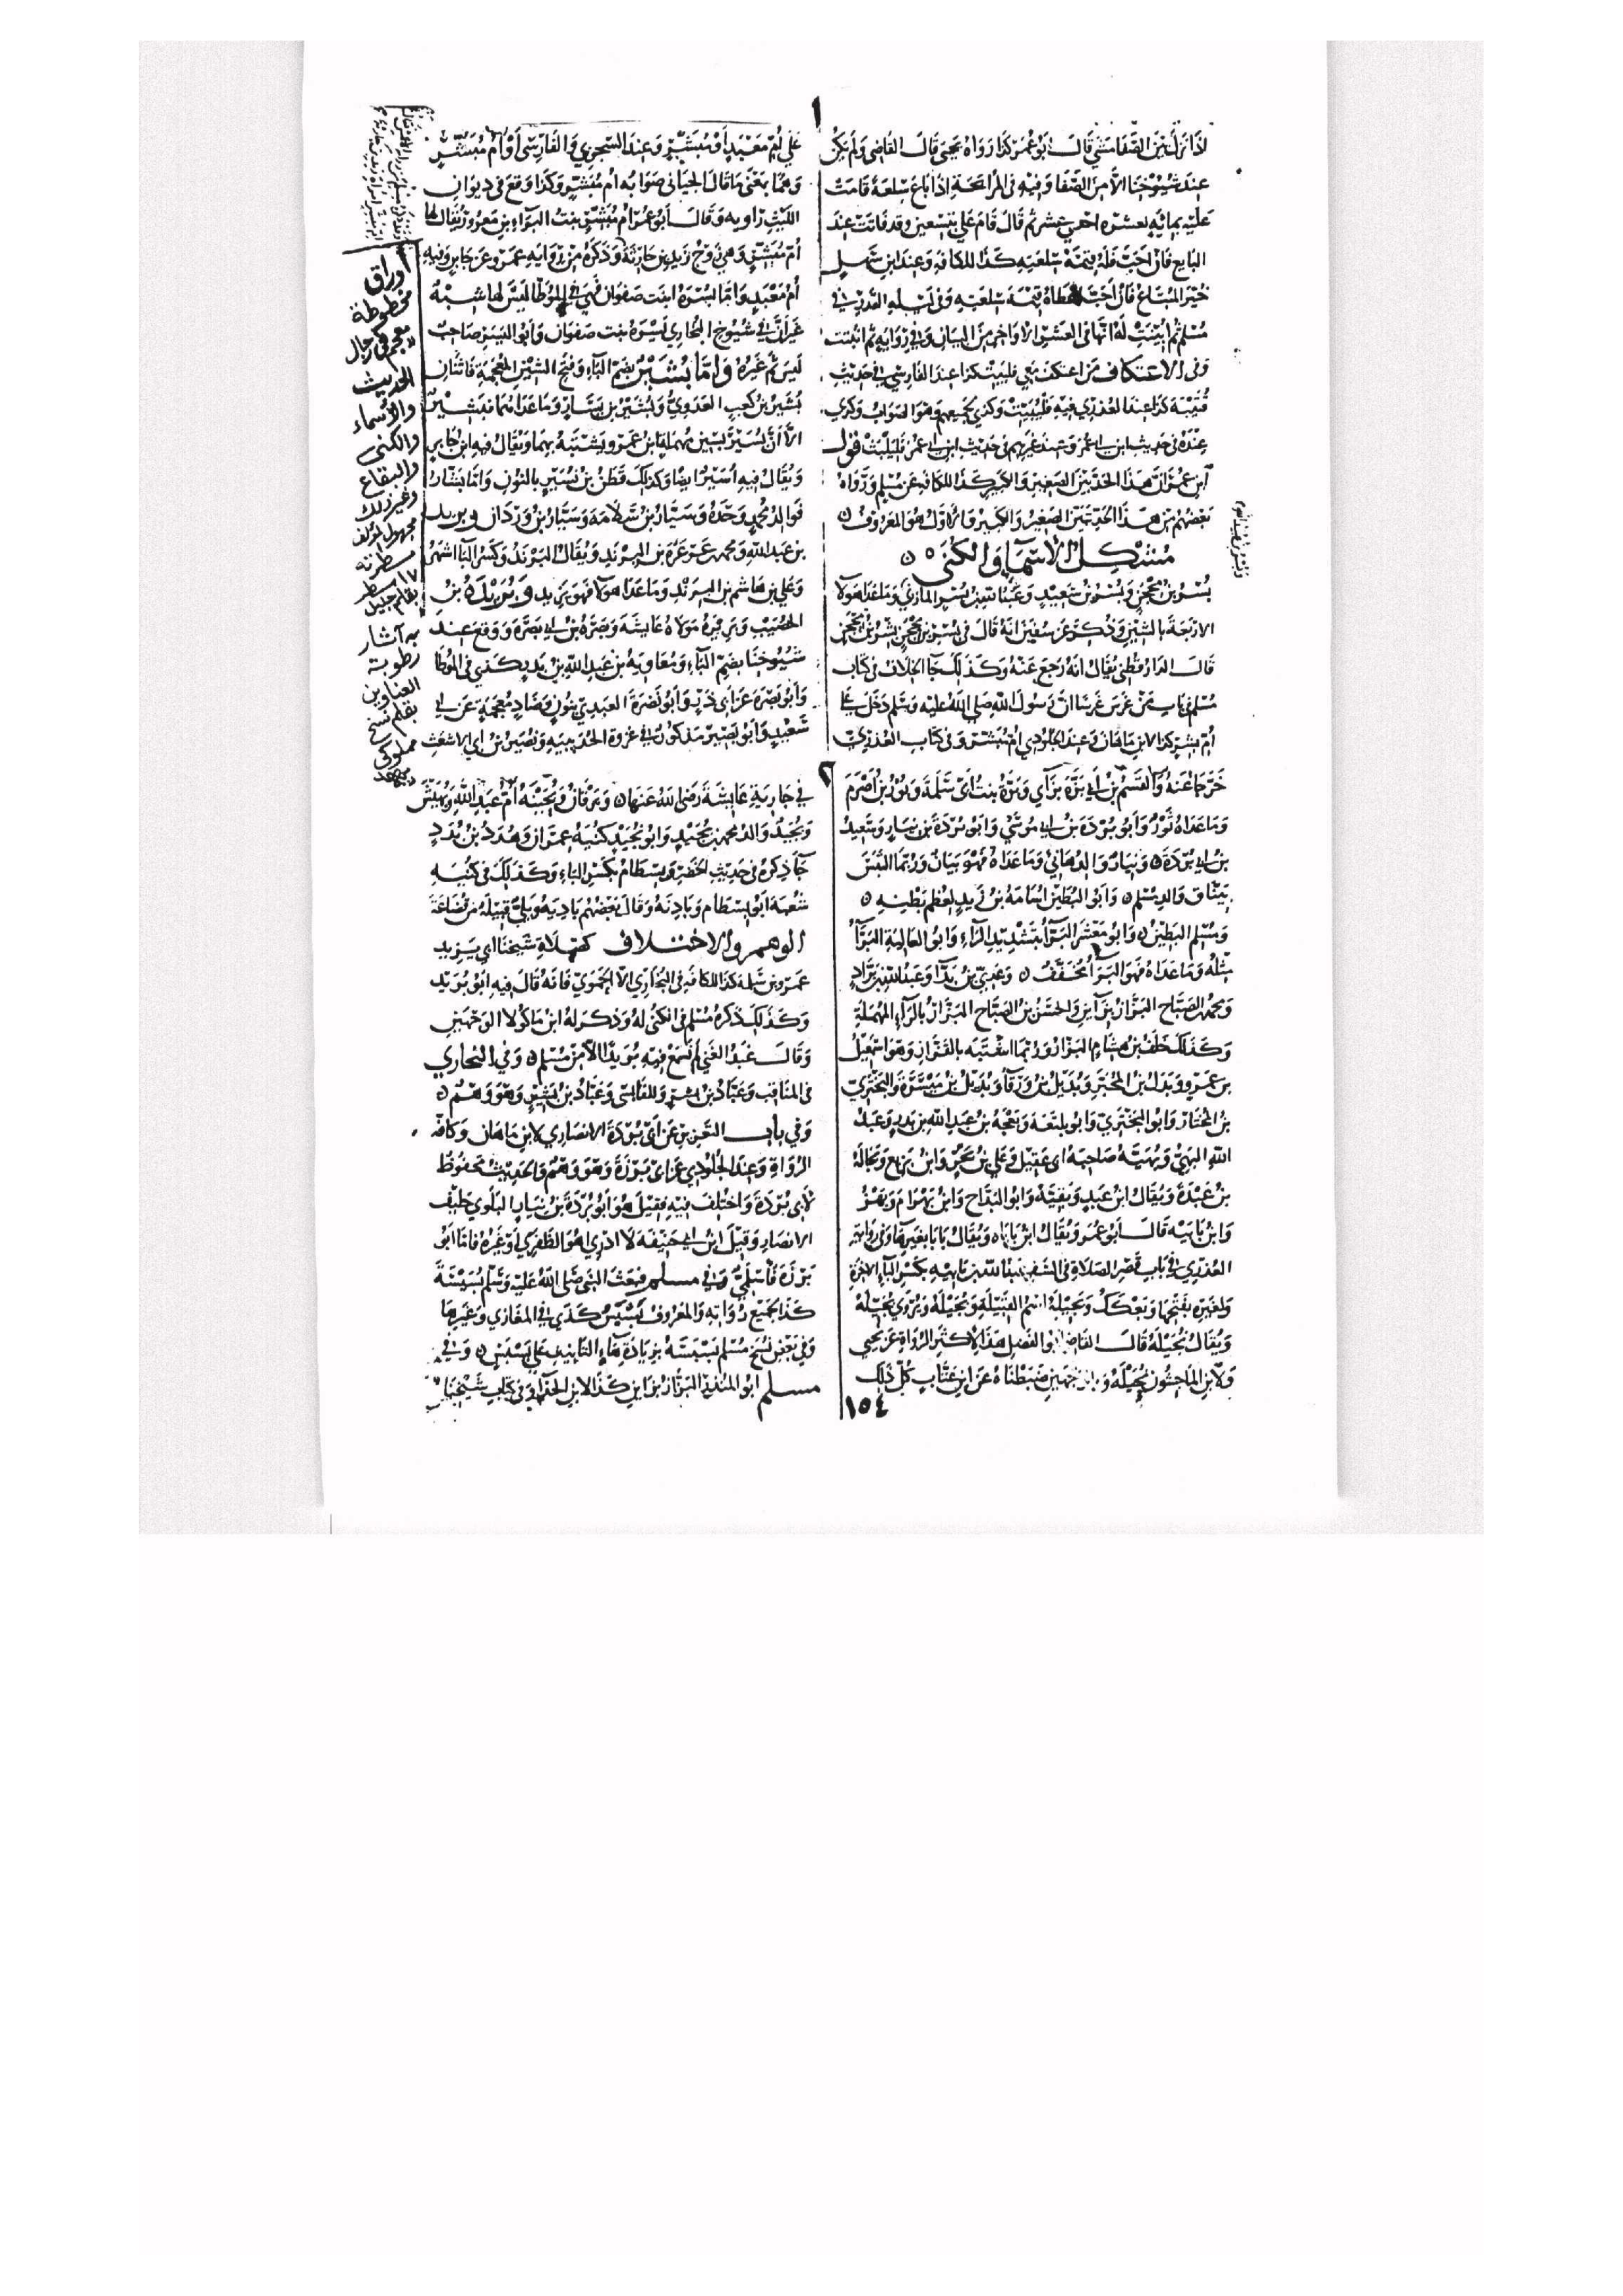 ١
اذا نزل بين الصفا مشى قال ابو عمر كذا رواه يحيى قال القاضي ولم يكن
عند شيوخنا الا من الصفا وفيه في المرابحة اذا باع سلعة قامت
عليه بمائه لعشره احدى عشر ثم قال قام علي بتسعين وقد فاتت عند
البايع فان احب فله قيمة سلعته كذا للكافه وعند ابن سهل
خير المبتاع فان احب اعطاه قيمة سلعته وفي ليله القدر في
مسلم ثم ابينت له انها في العشر الاواخر من البيان وفي روايه ثم اثبتت
وفي الاعتكاف من اعتكف معي فليبيت كذا عند الفارسي في حديث
قتيبة كذا عند العذري فيه فليبيت وكذى لجميعهم وهو الصواب وكذى
عنده في حديث ابن ابي عمر وعند غيرهم في حديث ابن ابي عمر فليلبث قول
ابن عمر ان هذا الحديثين الصغير والكبير كذا للكافه عن مسلم ورواه
بعضهم من هذا الحد بين الصغير والكبير والاول هو المعروف
مشكل الاسماء والكنى
بسر بن محجن وبسر بن سعيد وعبد الله بن بسر المازني وما عدا هولا
الاربعة بالشين وذكر عن سفين انه قال في بسر بن محجن بشر بن محجن
قال الدارقطني يقال انه رجع عنه وكذلك جا الخلاف في كتاب
مسلم في باب من غرس غرسا ان رسول الله صلى الله عليه وسلم دخل على
ام بشر كذا لابن ماهان وعند الجلودي ام مبشر وفي كتاب العذري
علي ام معبد او مبشر وعند السجزي والفارسي او ام مبشر
وهما بمعنى ما قال الجياني صوابه ام مبشر وكذا وقع في ديوان
الليث راويه وقال ابو عمر ام مبشر بنت البراء بن معرور يقال لها
ام مبشر وهي زوج زيد بن حارثة وذكره من روايه عمرو عن جابر وفيه
ام معبد واما بسرة ابنت صفوان فهي في الموطا ليس لها شبه
غير ان في شيوخ البخاري يسرة بنت صفوان وابو اليسر صاحب
ليس ثم غيره واما بشير بضم الباء وفتح الشين المعجمة فاثنان
بشير بن كعب العدوي وبشير بن يسار وما عداهما فبشير
الا ان يسير بسين مهملة ابن عمرو يشتبه بهما ويقال فيه ابن جابر
ويقال فيه اسير ايضا وكذلك قطن بن نسير بالنون واما بشار
فوالد محمد وحده وسيار بن سلامه وسيار بن وردان وبريد
بن عبد الله ومحمد عرعرة بن البرند ويقال البرند وكسر الباء اشهر
وعلي بن هاشم بن البرند وما عدا هولا فهو يزيد وبريدة بن
الحصيب وبريرة مولاة عايشه وبصرة بن ابي بصرة ووقع عند
شيوخنا بضم الباء ومعاوية بن عبد الله بن بدر كذى في الموطا
وابو بصرة عن ابي ذر وابو نضرة العبدي بنون وضاد معجمة عن ابي
سعيد وابو بصير مذكور في غزوة الحديبيه ونصير بن ابي الاشعث
أوراق
مخطوطة
معجم في رجال
الحديث
والأسماء
والكنى
والبقاع
وغير ذلك
مجهول المؤلف
مسطرته
١٧ سطر
بقلم جليل
به آثار
رطوبة
العناوين
بقلم نسخ
مملوكي
٢
خرجا عنه والقسم بن ابي بزة بزاي وبرة بنت ابي سلمة وبور بن اصرم
وما عداه ثور وابو بردة بن ابي موسى وابو بردة بن نيار وسعيد
بن ابي بردة وبيان والد هاني وما عداه فهو بيان وربما التبس
بيناق والد مسلم وابو البطين اسامة بن زيد لعظم بطنه
ومسلم البطين وابو معشر البراء بتشديد الراء وابو العالية البراء
مثله وما عداه فهو البراء مخفف وعدي بن بدا وعبد الله بن براد
ومحمد الصباح البزاز بزاين والحسن بن الصباح البزار بالراء المهملة
وكذلك خلف بن هشام البزار وربما اشتبه بالقزاز وهو اسمعيل
بن عمرو وبدل بن المحبر وبديل بن ورقا وبديل بن ميسرة والبختري
بن المختار وابو البختري وابو بلتعة وبعجة بن عبد الله بن بدر وعبد
الله البهي وبهيه صاحبة ابي عقيل وعلي بن بحر وابن بزيع وبجالة
بن عبدة ويقال ابن عبد وبقية وابو البداح وابن بهرام وبهز
وابن بابيه قال ابو عمر ويقال ابن باباه ويقال بابا بغير هاء وفي رواية
العذري في باب قصر الصلاة في السفر عبد الله بن بابيه بكسر الباء الاخرة
ولغيره بفتحها وبعكك وبجيلة اسم القبيلة وبجيله ويروى نجيلة
ويقال بحيلة قال القاضي ابو الفضل هذا لاكثر الرواة عن يحيى
ولابن الماجشون بجيلة وبالوجهين ضبطناه عن ابن عتاب كل ذلك
١٥٤
في جارية عايشة رضي الله عنها وبرقان وبحينة ام عبد الله وبهيش
وبجيد والد محمد بن بجيد وابو نجيد كنية عمران وهدد بن بدد
جا ذكره في حديث الخضر وبسطام بكسر الباء وكذلك في كنيه
شعبه ابو بسطام وبادنه وقال بعضهم باديه وبلي قبيلة من قضاعة
الوهم والاختلاف كصلاة شيخنا ابي يزيد
عمرو بن سلمه كذا للكافه في البخاري الا الحموي فانه قال فيه ابو بريد
وكذلك ذكره مسلم في الكنى له وذكر له ابن ماكولا الوجهين
وقال عبد الغني لم نسمع فيه بريدا الا من مسلم وفي البخاري
في المناقب وعباد بن بشر وللقابسي وعباد بن بشير وهو وهم
وفي باب التعزير عن ابي بردة الانصاري لابن ماهان وكافة
الرواة وعند الجلودي عن ابي برزة وهو وهم والحديث محفوظ
لابي بردة واختلف فيه فقيل هو ابو بردة بن نيار البلوي حليف
الانصار وقيل ابن ابي حنيفه لا ادري هو الظفري او غيره فاما ابو
برزة فاسلمي وفي مسلم فبعث النبي صلى الله عليه وسلم بسيسة
كذا لجميع رواته والمعروف بسبس كذى في المغازي وغيرها
وفي بعض نسخ مسلم بسبسة بزيادة هاء التانيث على بسبس وفي
مسلم ابو المنذر البزاز بزاين كذا لابن الحذا وفي كتاب شيخنا